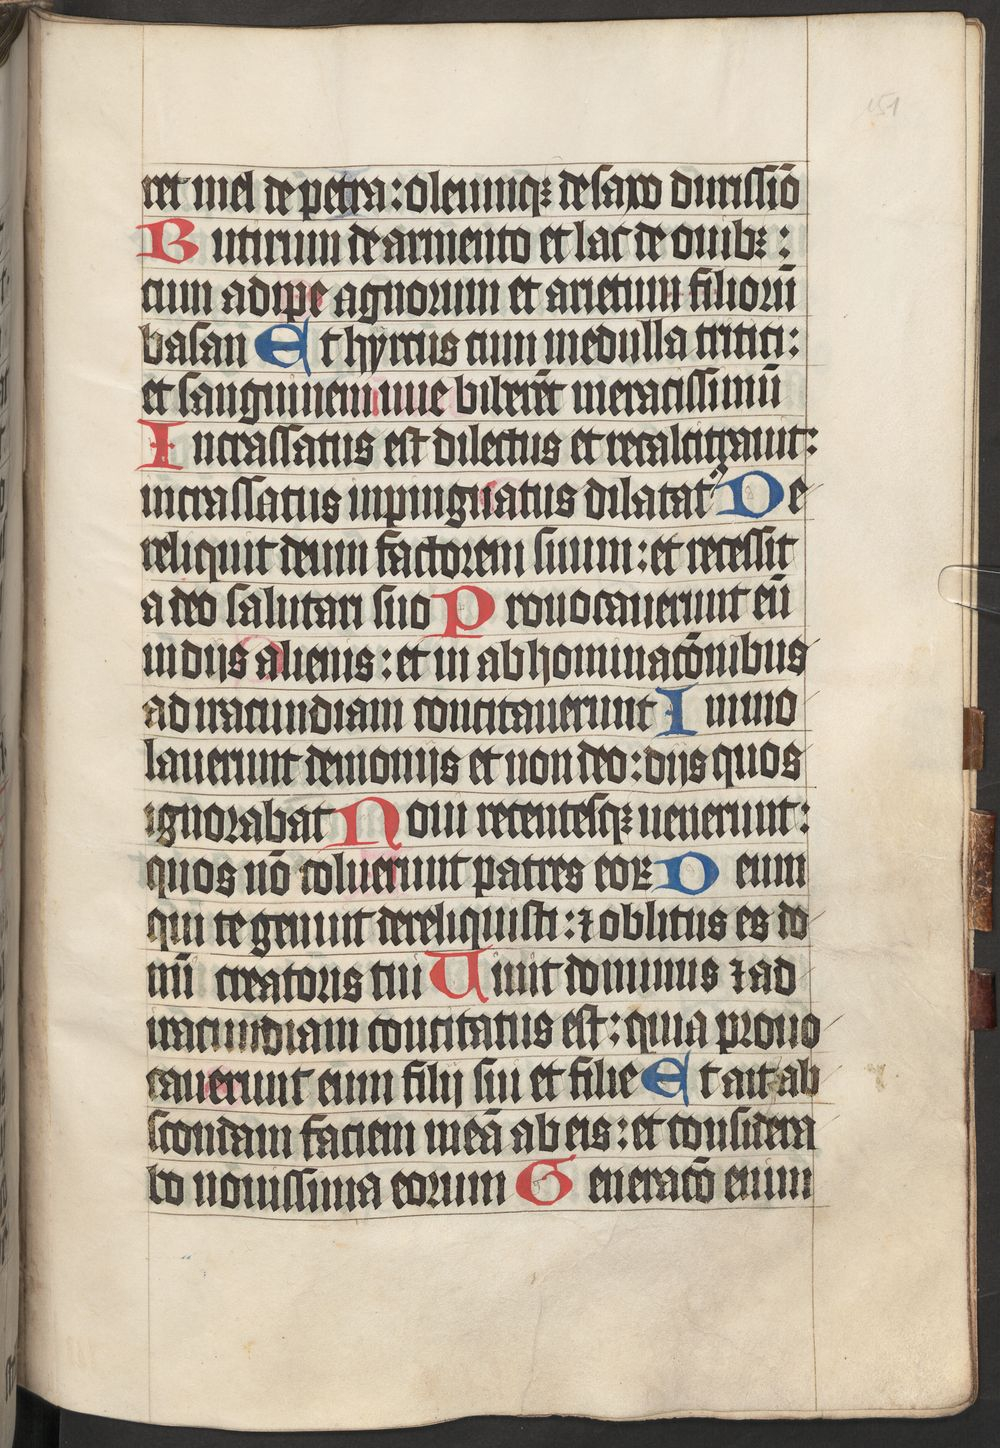 151
ret mel de petra : oleumqꝫ de saxo durissīo
Butirum de armento et lac de ouibꝫ :
cum adipe agnorum et arietum filiorū
basan Et hyrcus cum medulla tritici :
et sanguinem uue biberēt meracissimū
Incrassatus est dilectus et recalcitrauit :
incrassatus inpinguatus dilatatꝰ De
reliquit deum factorem suum : et recessit
a deo salutari suo Prouocauerunt eū
in dijs alienis : et in abhominacōnibus
ad iracundiam concitauerunt Immo
lauerunt demonijs et non deo : dijs quos
ignorabat Noui recentesqꝫ uenerunt :
quos nō coluerunt patres eoꝝ Deum
qui te genuit dereliquisti : ⁊ oblitus es do
mī creatoris tui Uidit dominus ⁊ ad
iracundiam concitatus est : quia prouo
cauerunt eum filij sui et filie Et ait ab
scondam faciem meā ab eis : et considera
bo nouissima eorum Generacō enim